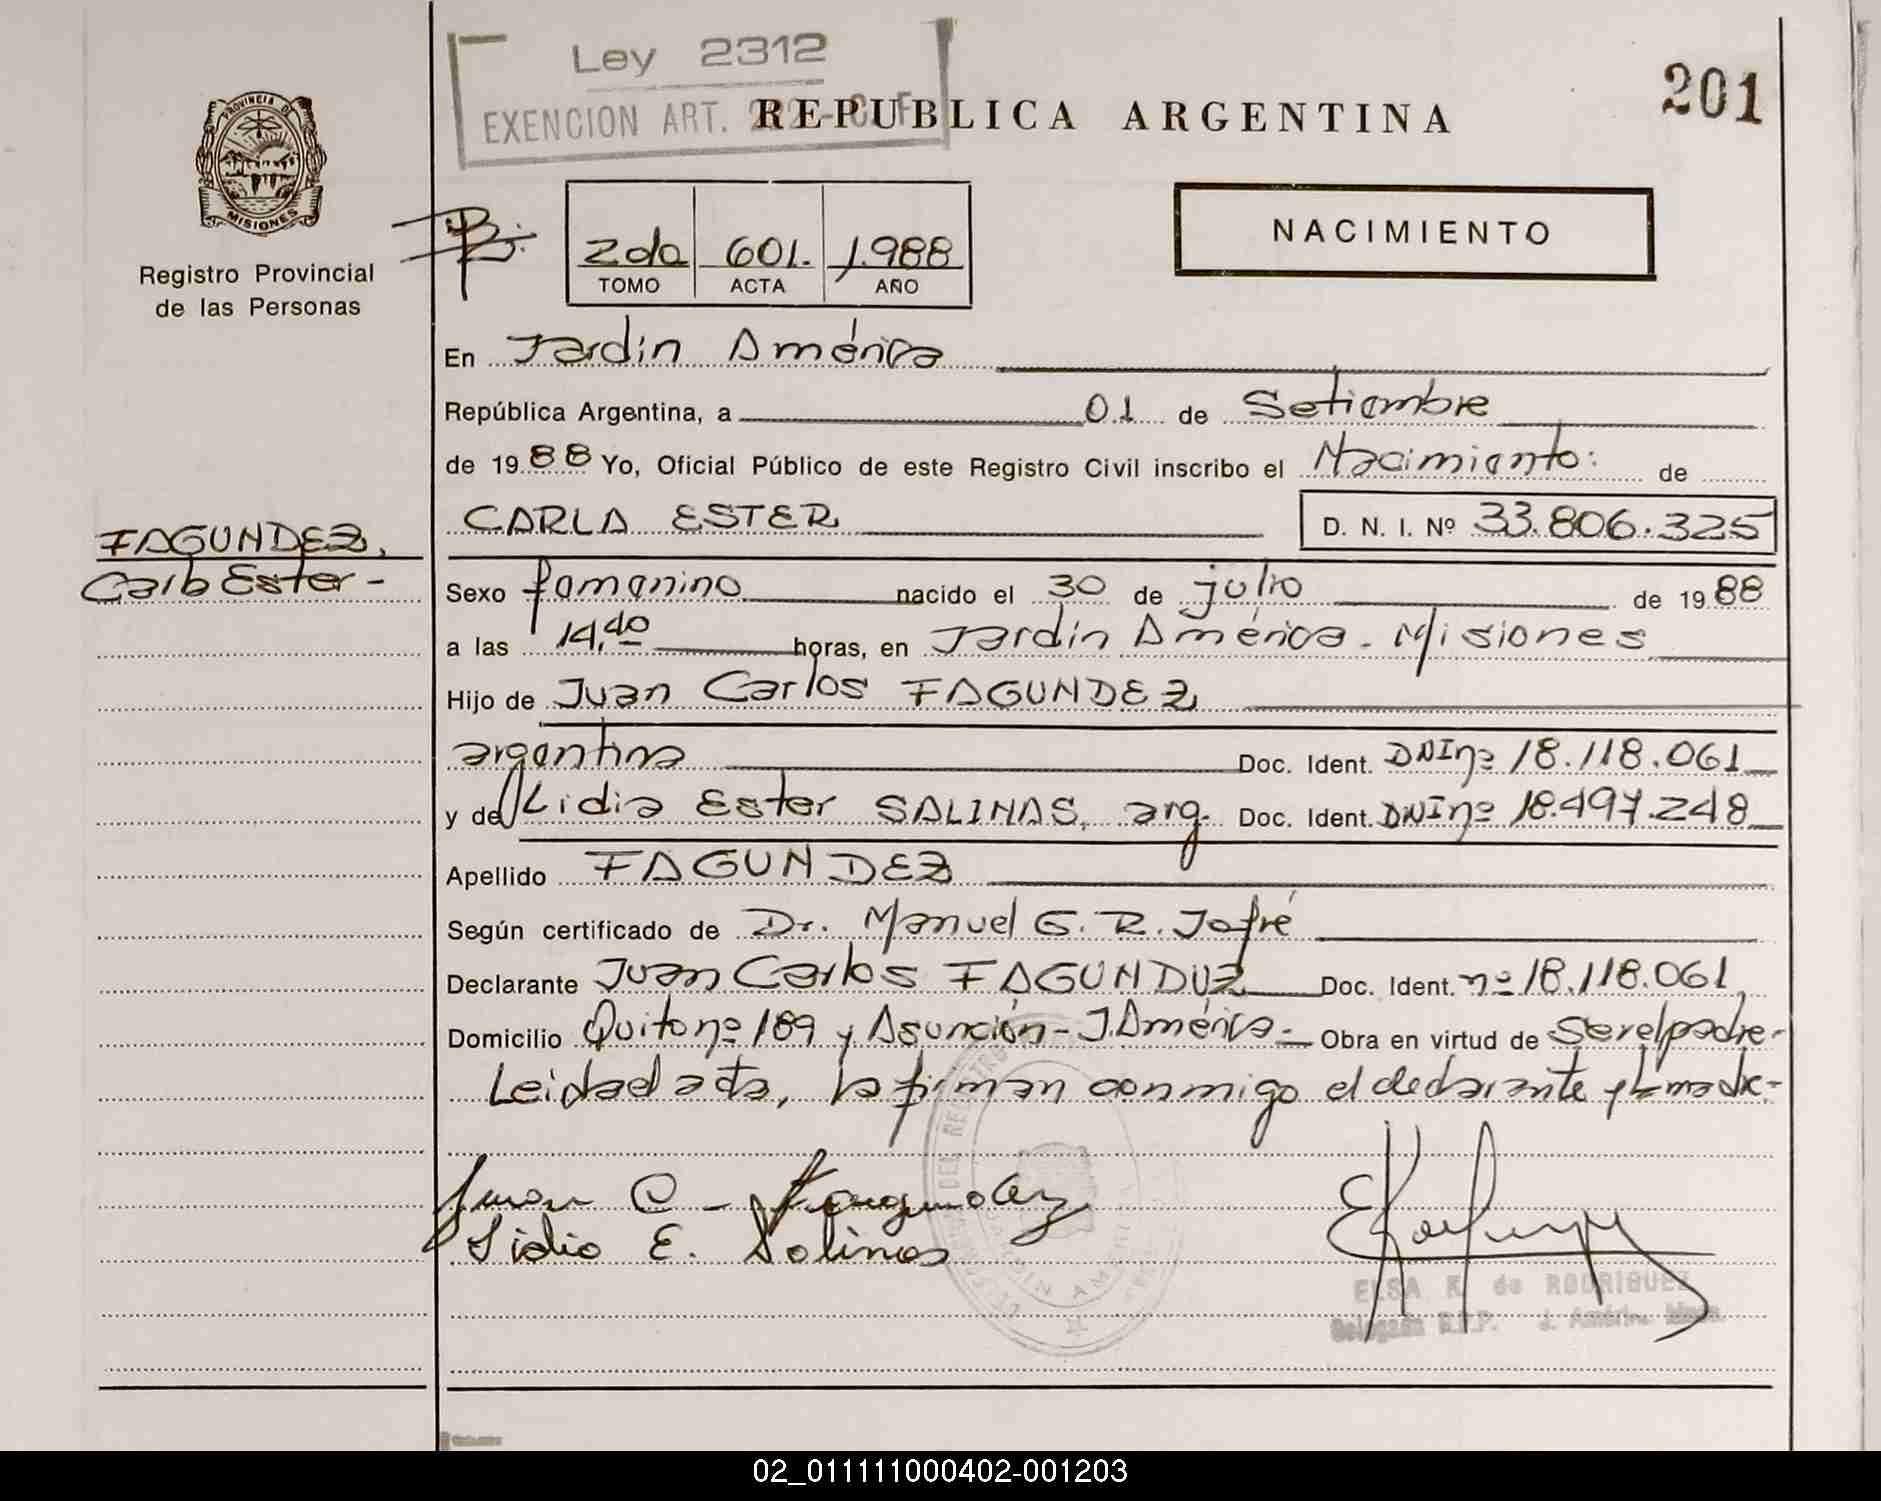 Ley 2312
EXENCION ART. 222-C.F.
REPUBLICA ARGENTINA
201
PROVINCIA DE
MISIONES
Registro Provincial
de las Personas
2da 601. 1.988
TOMO ACTA AÑO
NACIMIENTO
En Jardín América
República Argentina, a 01 de Setiembre
de 1988 Yo, Oficial Público de este Registro Civil inscribo el Nacimiento: de
CARLA ESTER D. N. I. Nº 33.806.325
FAGUNDEZ,
Carla Ester-
Sexo femenino nacido el 30 de julio de 1988
a las 14,40 horas, en Jardín América - Misiones
Hijo de Juan Carlos FAGUNDEZ
argentina Doc. Ident. DNI nº 18.118.061
y de Lidia Ester SALINAS, arg. Doc. Ident. DNI nº 18.497.248
Apellido FAGUNDEZ
Según certificado de Dr. Manuel G. R. Jofré
Declarante Juan Carlos FAGUNDUZ Doc. Ident. nº 18.118.061,
Domicilio Quito nº 189 y Asunción - J. América - Obra en virtud de ser el padre-
Leida el acta, la firman conmigo el declarante y la madre.-
Juan C - Fagundez
Lidia E. Salinas
ELSA K. de RODRIGUEZ
Delegada R.P.P. J. América
JARDIN AMERICA
02_011111000402-001203